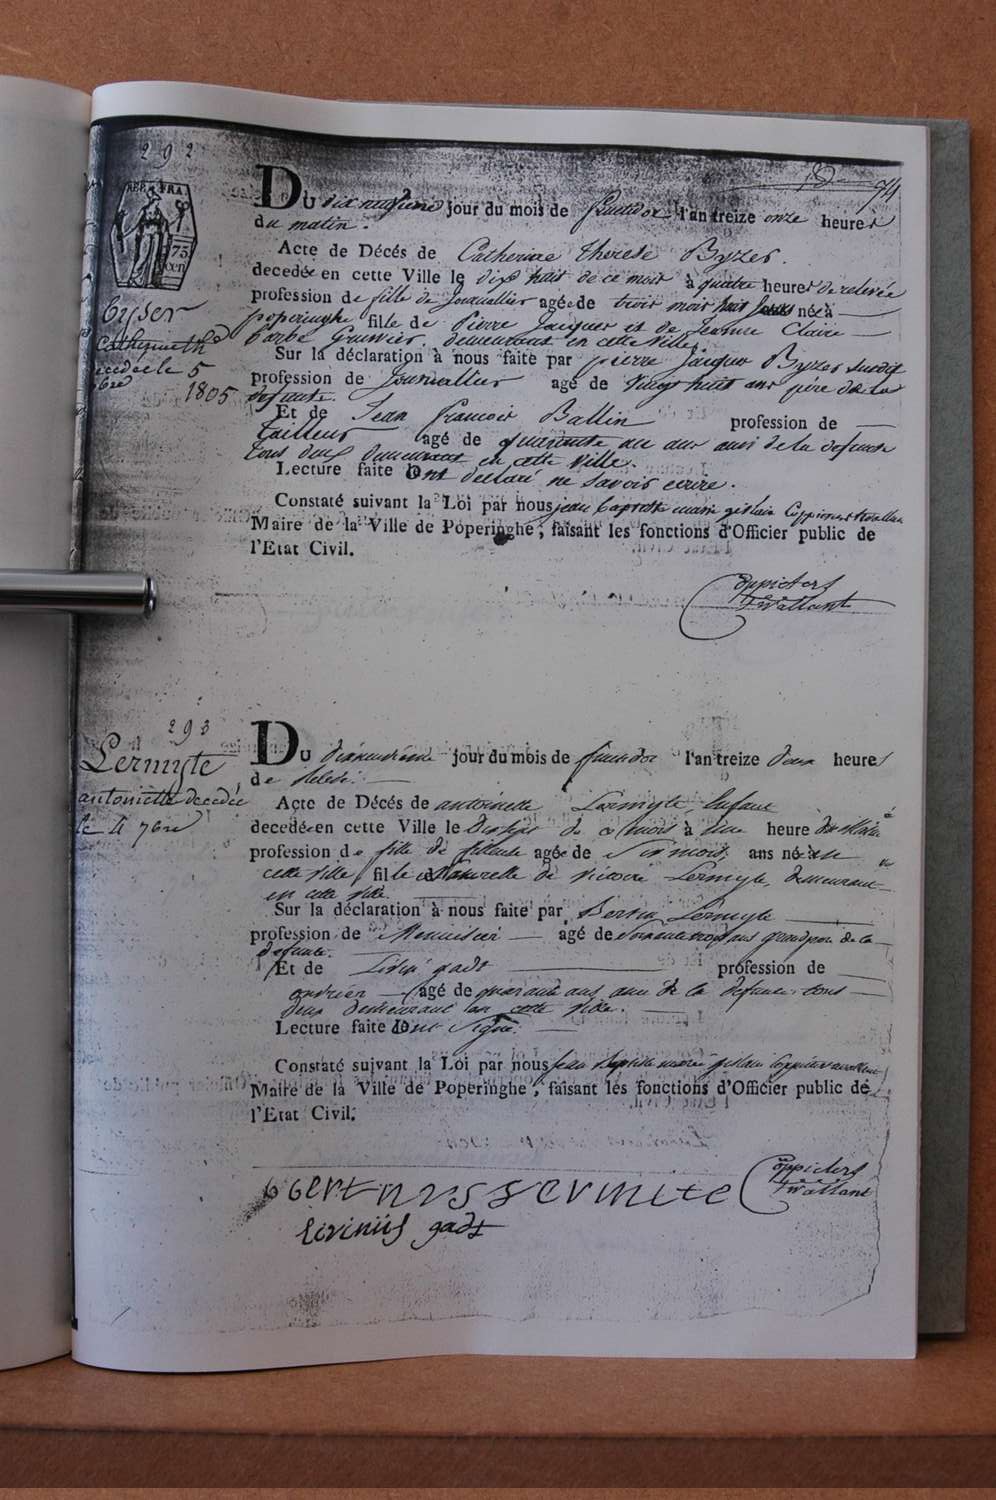 292
REP. FRA.
75
cen
94
Du dix neufieme jour du mois de fructidor l'an treize onze heures
du matin.
Acte de Décés de Catherine Therese Byser.
decedée en cette Ville le dix huit de ce mois à quatre heures de relevée
profession de fille de Journallier agée de trois mois né à
poperinghe fille de Pierre Jacques et de Jeanne Claire
Barbe demeurant en cette Ville.
Sur la déclaration à nous faite par pierre Jacques Byser susdit
profession de Journallier agé de vingt huit ans père de la
defunte.
Et de Jean francois Ballin profession de
tailleur agé de quarante un ans ami de la defunte
tous deux demeurant en cette Ville.
Lecture faite Ont declaré ne savoir ecrire.
Constaté suivant la Loi par nous jean baptiste marie gislain Coppieters
Maire de la Ville de Poperinghe, faisant les fonctions d'Officier public de
l'Etat Civil.
Coppieters
t'wallant
Byser
Catherine Th
decedée le 5
7bre
1805
293
Lermyte
antoinette decedée
le 4 7bre
Du dixneuvième jour du mois de fructidor l'an treize deux heures
de relevée.
Acte de Décés de antoinette Lermyte Enfant
decedée en cette Ville le dixsept de ce mois à une heure du matin
profession de fille de fileuse agée de Six mois, ans né à en
cette ville fille naturelle de victoire Lermyte, demeurant
en cette ville.
Sur la déclaration à nous faite par Bertin Lermyte
profession de Menuisier agé de ans grandpere de la
defunte.
Et de Livin gadt profession de
ouvrier agé de quarante ans ami de la defunte tous
deux demeurant en cette ville.
Lecture faite ont signé.
Constaté suivant la Loi par nous jean baptiste marie gislain Coppieters
Maire de la Ville de Poperinghe, faisant les fonctions d'Officier public de
l'Etat Civil.
Coppieters
t'wallant
livinus gadt